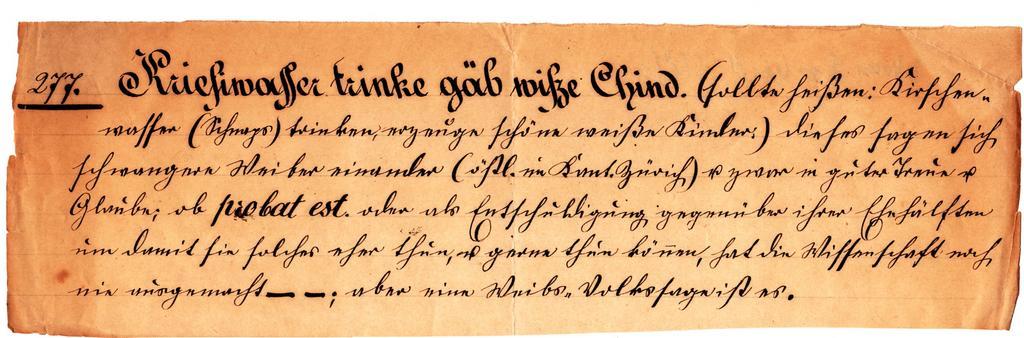 277. Kriesiwasser trinke gäb wiße Chind. (sollte heißen: Kirschen-
wasser (Schnaps) trinken, erzeuge schöne weiße Kinder:) dieses sagen sich
schwangere Weiber einander (östl. im Kant. Zürich) u zwar in guter Treue u
Glaube; ob probat est. oder als Entschuldigung gegenüber ihrer Ehehälften
um damit sie solches eher thun, u gerne thun können, hat die Wissenschaft noch
nie ausgemacht — —; aber eine Weibs-Volkssage ist es.